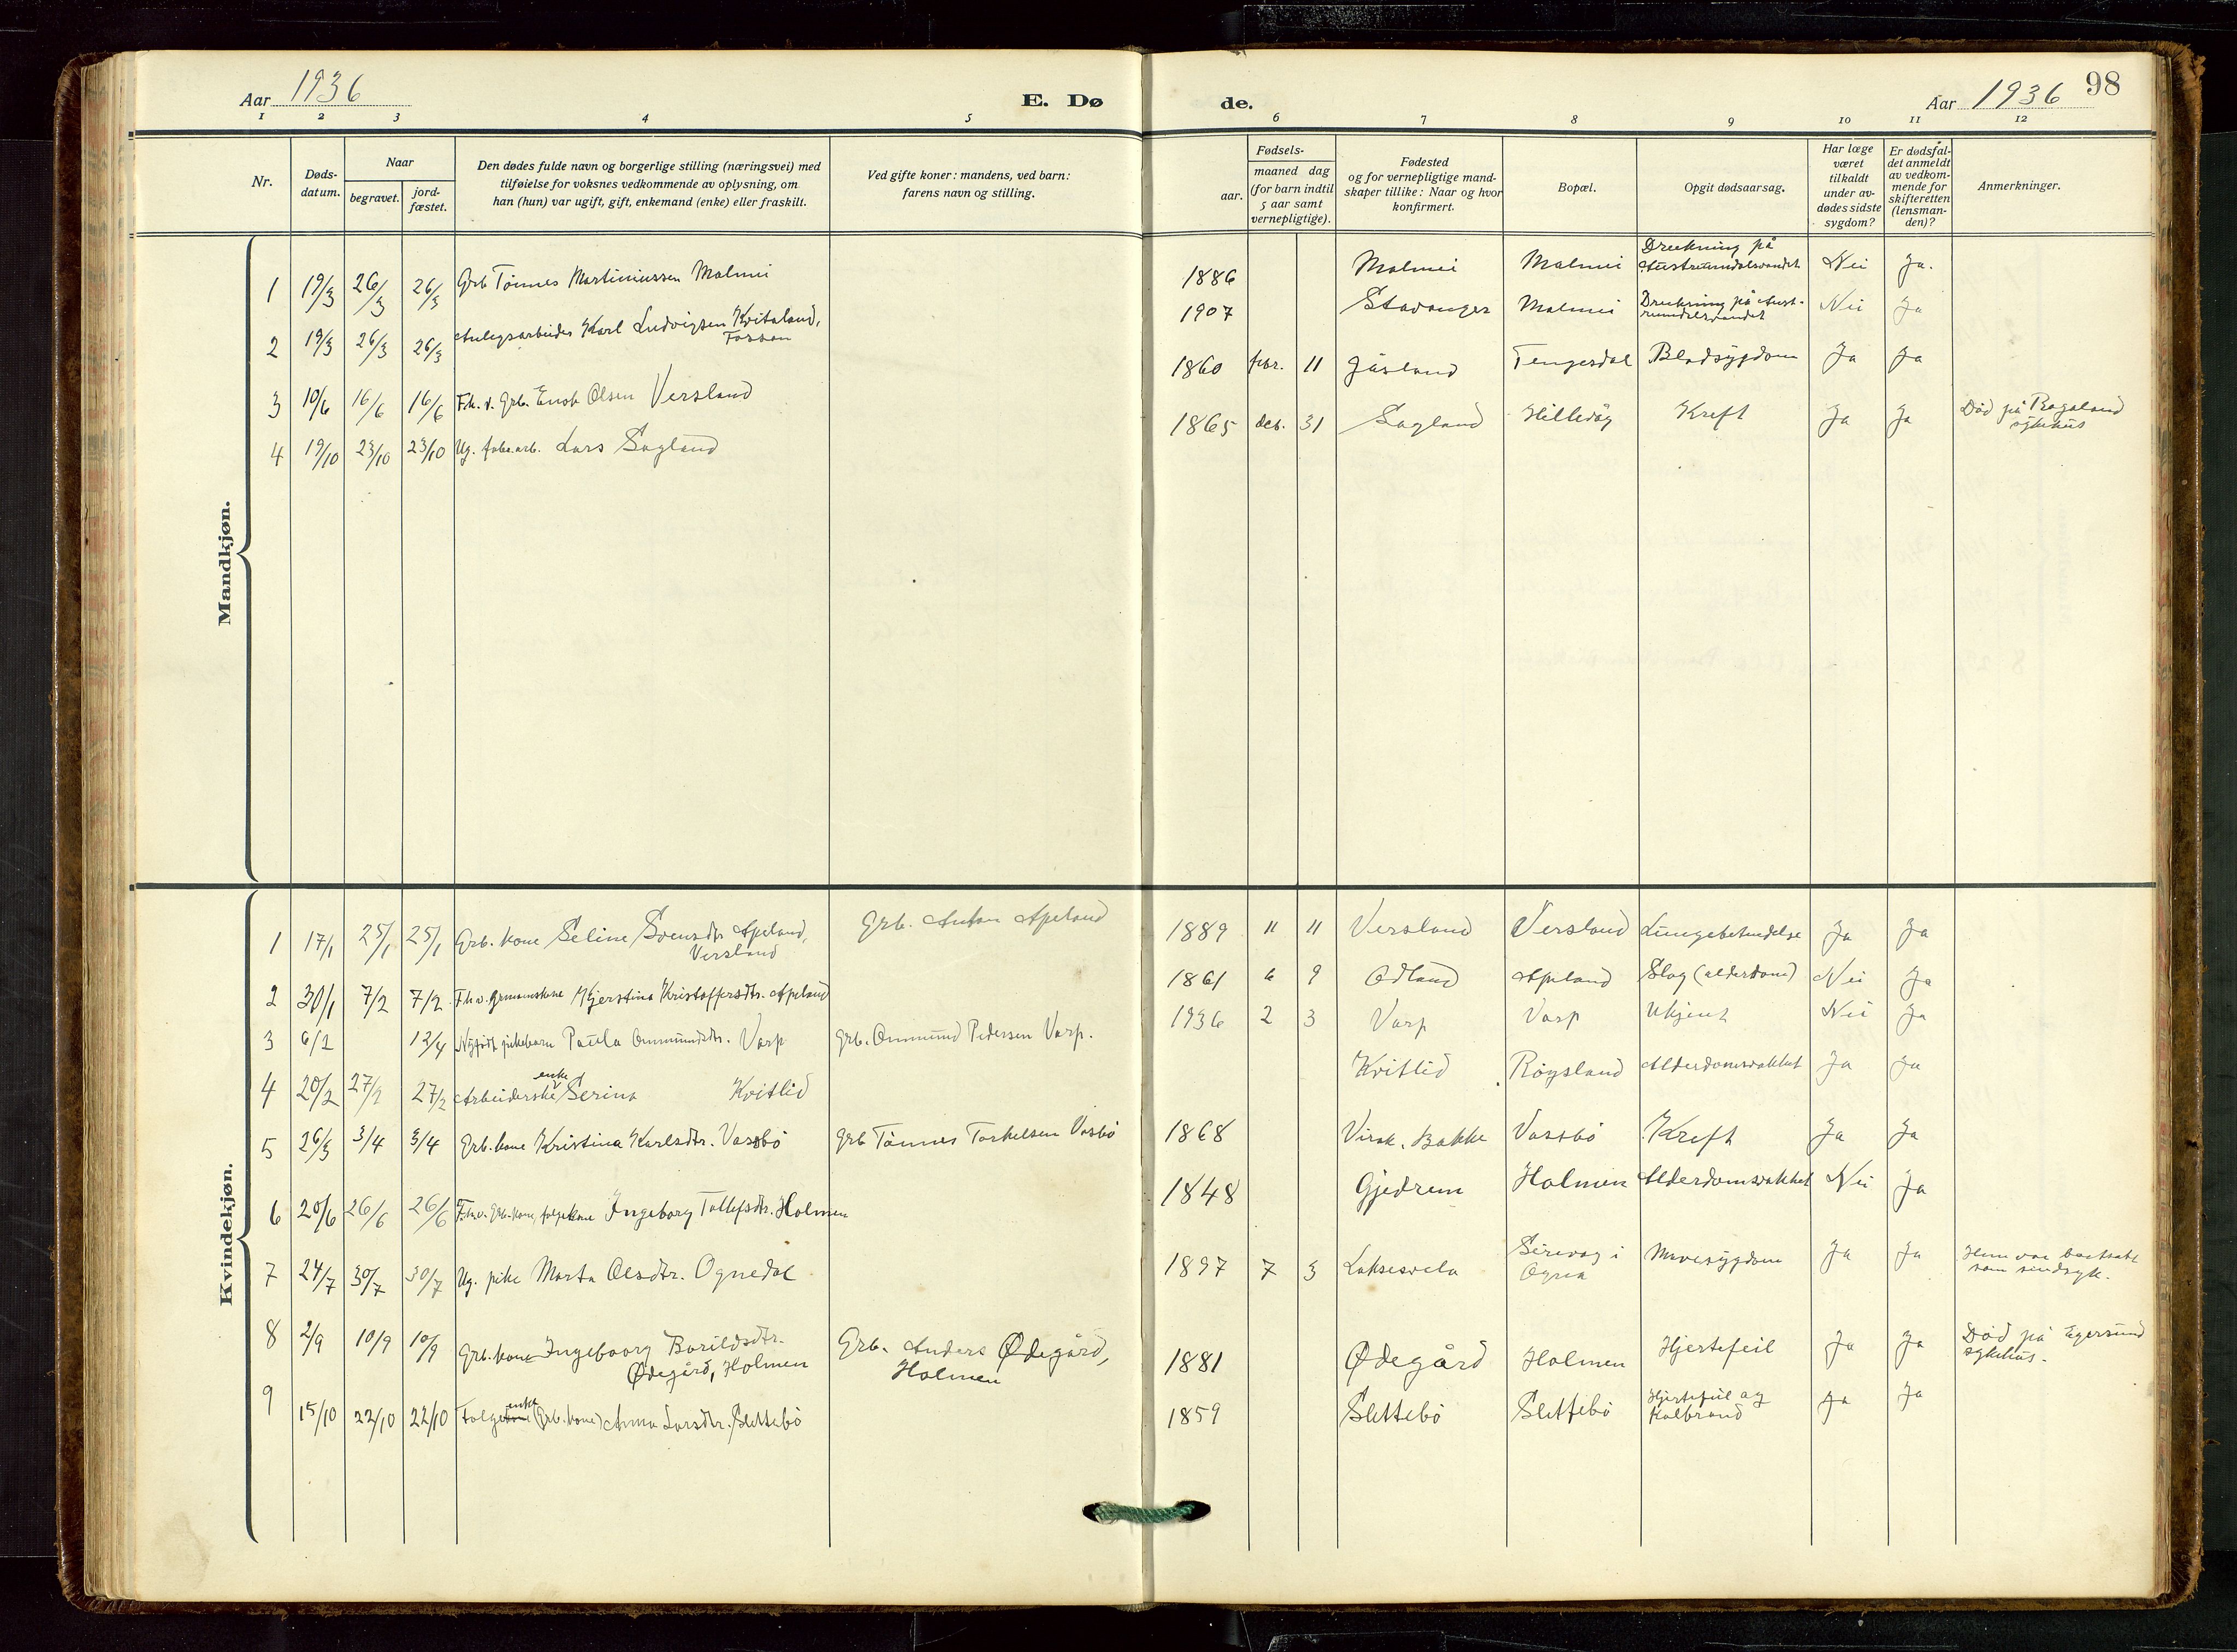 Aar 1936
E. Dø
de.
Aar 1936
98
1 2 3 4 5 6 7 8 9 10 11 12
Nr.
Døds-
datum.
Naar
begravet.
jord-
fæstet.
Den dødes fulde navn og borgerlige stilling (næringsvei) med
tilføielse for voksnes vedkommende av oplysning, om
han (hun) var ugift, gift, enkemand (enke) eller fraskilt.
Ved gifte koner: mandens, ved barn:
farens navn og stilling.
Fødsels-
aar.
maaned dag
(for barn indtil
5 aar samt
vernepligtige).
Fødested
og for vernepligtige mand-
skaper tillike: Naar og hvor
konfirmert.
Bopæl.
Opgit dødsaarsag.
Har læge
været
tilkaldt
under av-
dødes sidste
sygdom?
Er dødsfal-
det anmeldt
av vedkom-
mende for
skifteretten
(lensman-
den)?
Anmerkninger.
Mandkjøn.
1 19/3 26/3 26/3 Grb Tönnes Martiniussen Malmei 1886 Malmei Malmei Drukning på Austrumdalsvandet Nei Ja.
2 19/3 26/3 26/3 Anlegsarbeider Karl Ludvigsen Kvitaland, 1907 Stavanger Malmei Drukning på Aust-
rumdalsvandet Nei Ja
3 10/6 16/6 16/6 F.h.v. Grb. Enok Olsen Versland 1860 febr. 11 Gåsland Tengesdal Blodsygdom Ja Ja
4 19/10 23/10 23/10 Ug. Lars Sagland 1865 des. 31 Sagland Hilledåg Kreft Ja Ja Död på Rogaland
sykehus
Kvindekjøn.
1 17/1 25/1 25/1 Grb. kone Seline Svensdtr. Apeland,
Versland Grb. Anton Apeland 1889 11 11 Versland Versland Lungebetendelse Ja Ja
2 30/1 7/2 7/2 F.h.v. grmannskone Kjerstina Kristoffersdtr. Apeland 1861 6 9 Odland Apeland Slag (alderdom) Nei Ja
3 6/2 12/4 Nyfödt pikebarn Paula Ommundsdtr. Varp Grb. Ommund Pedersen Varp. 1936 2 3 Varp Varp Ukjent Nei Ja
4 20/2 27/2 27/2 Arbeiderske enke Serina Kvitlid Kvitlid Röysland Alderdomsvakhet Ja Ja
5 26/3 3/4 3/4 Grb. kone Kristina Karlsdtr. Vassbö Grb Tönnes Torkelsen Vasbö 1868 Virak, Bakke Vassbö Kreft Ja Ja
6 20/6 26/6 26/6 F.h.v. Grb. kone, folgekone Ingeborg Tollefsdtr. Holmen 1848 Gjedrem Holmen Alderdomsvakhet Nei Ja
7 24/7 30/7 30/7 Ug. pike Marta Olsdtr. Ognedal 1897 7 3 Laksesvela Sirevåg i
Ogna Mavesygdom Ja Ja Hun var bortsatt
som sindsyk.
8 2/9 10/9 10/9 Grb. kone Ingeborg Bårildsdtr.
Ødegård, Holmen Grb. Anders Ødegård,
Holmen 1881 Ødegård Holmen Hjertefeil Ja Ja Död på Egersund
sykehus.
9 15/10 22/10 22/10 Folge enke (Grb. kone) Anna Larsdtr. Slettebö 1859 Slettebö Slettebö Hjertefeil og
Kolbrand Ja Ja